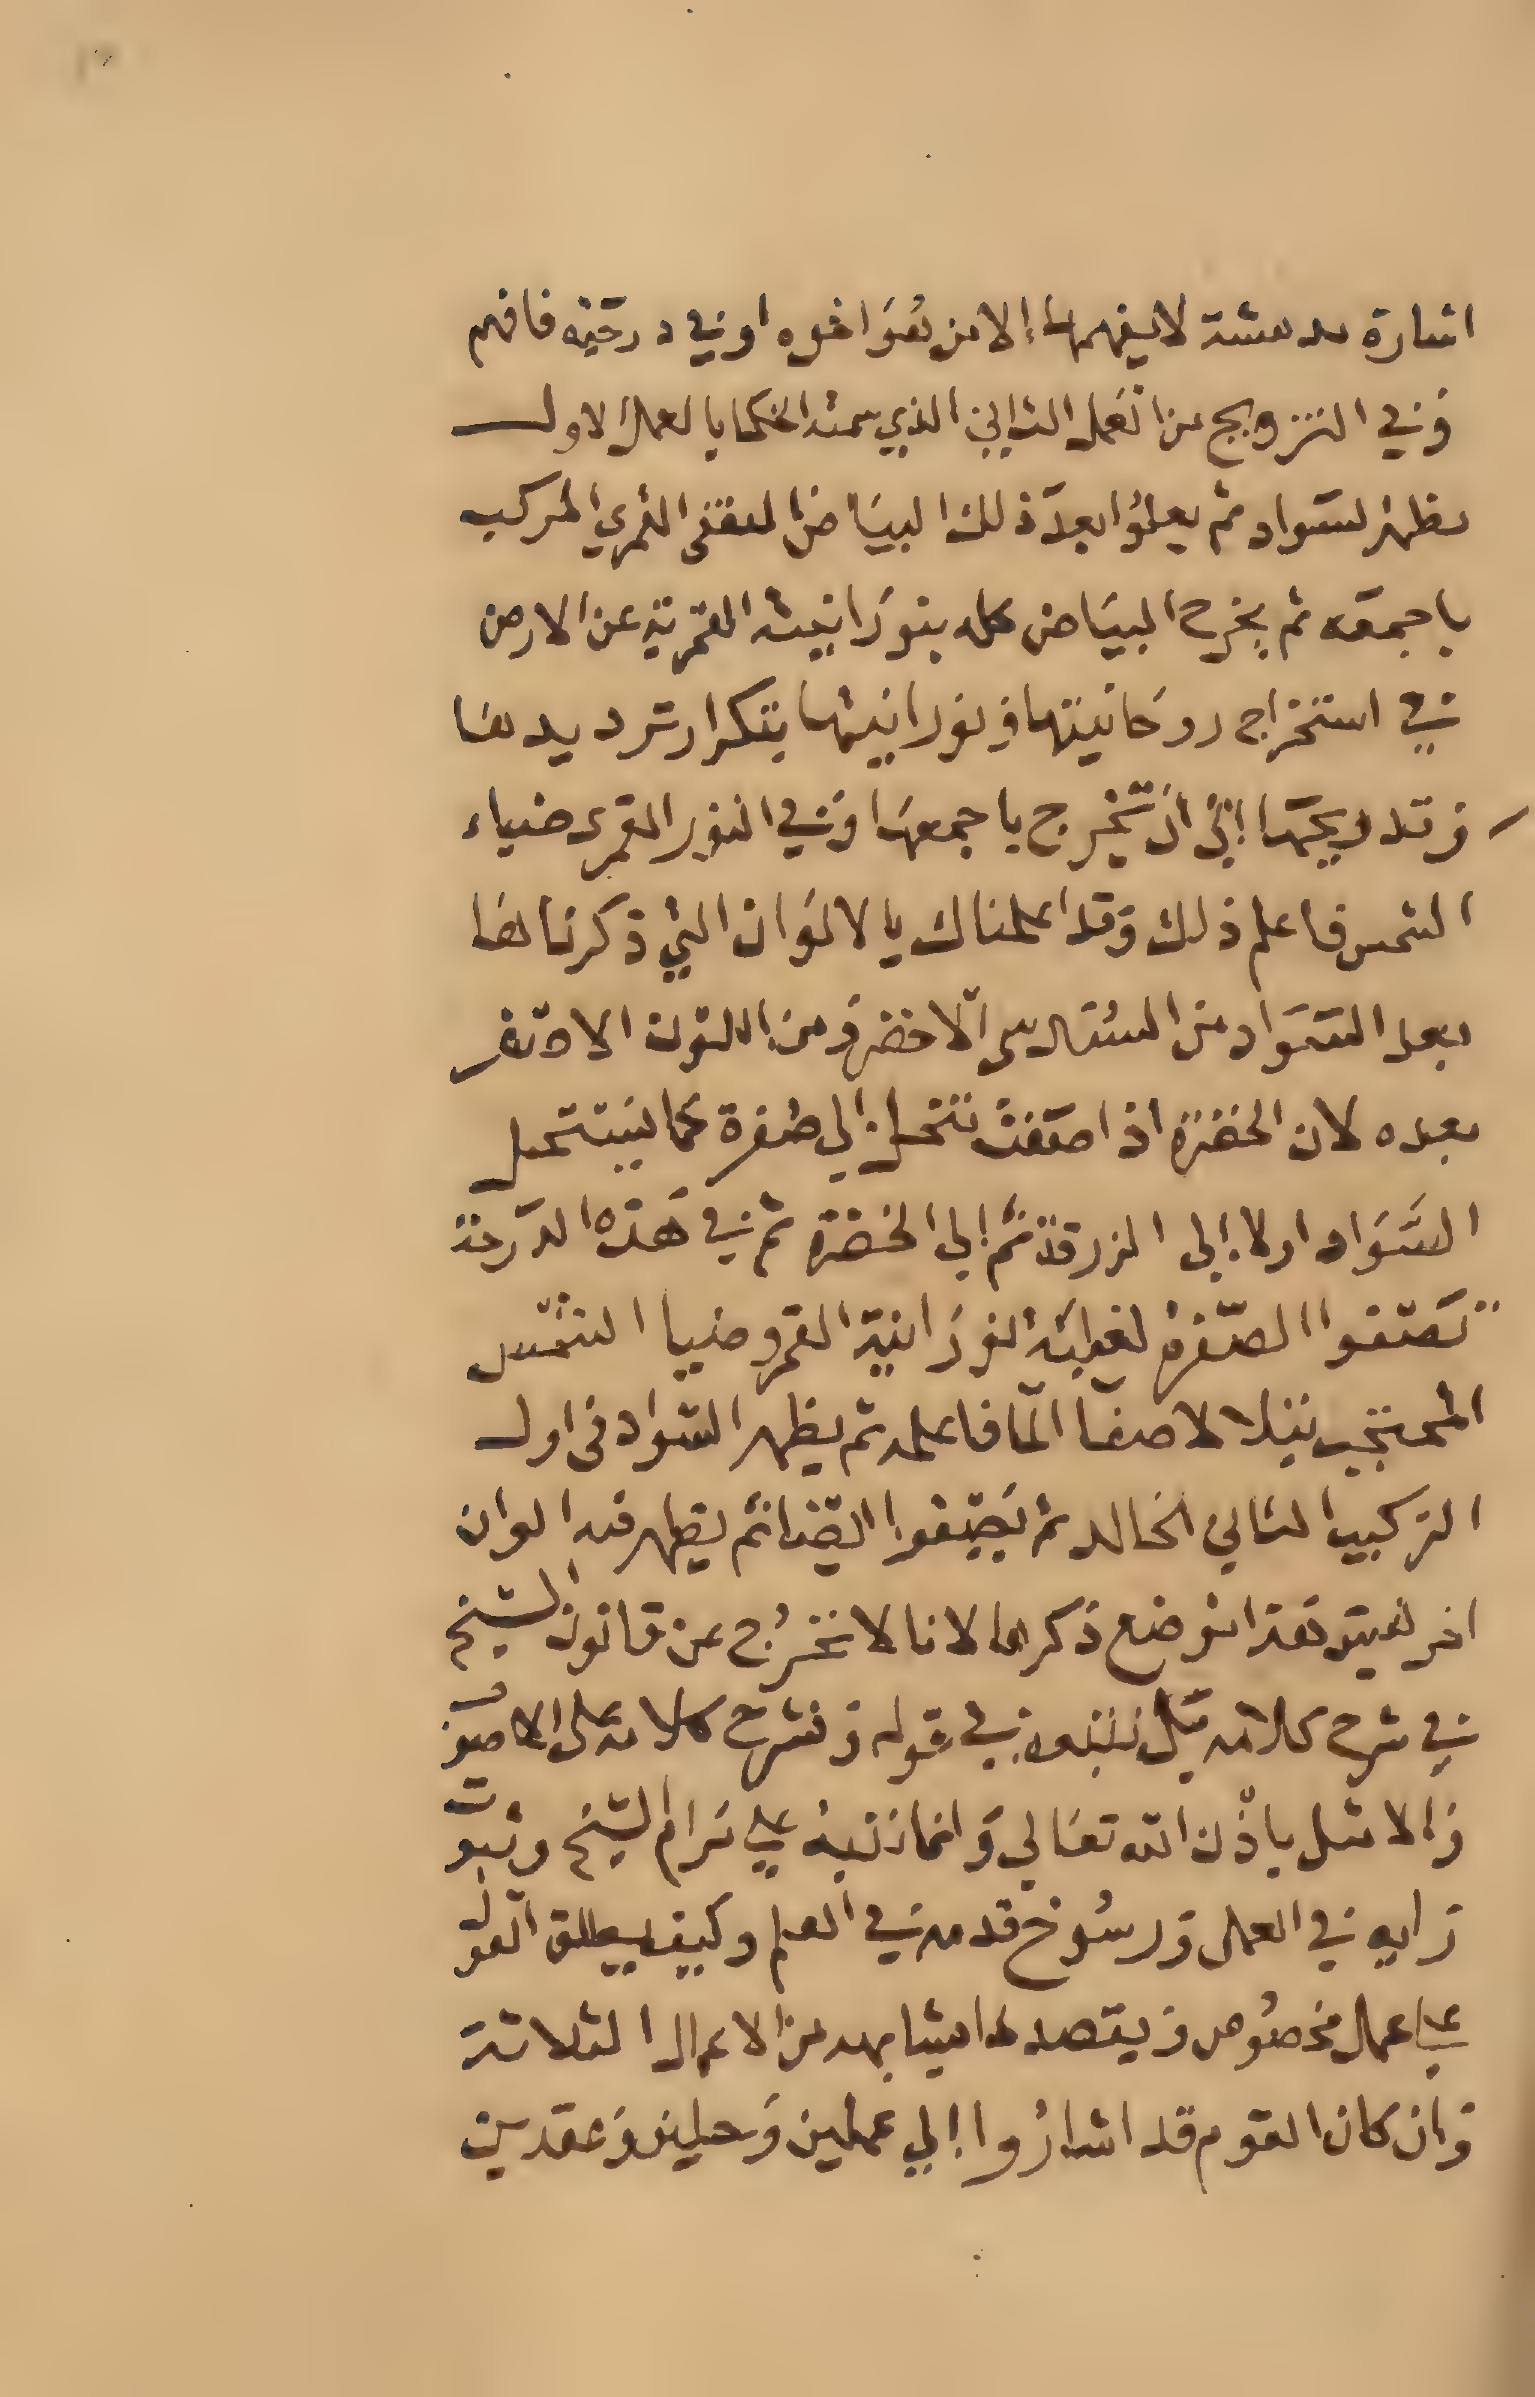 اشارة مدهشة لا يفهمها إلا من هو اخوه او في درجته فافهم
وفي التزويج من العمل الثاني الذي سمته الحكما بالعمل الاول
يظهر السواد ثم يعلوا بعد ذلك البياض القمري المركب
باجمعه ثم يخرج البياض كله بنورانيته القمرية عن الارض
في استخراج روحانيتها ونورانيتها بتكرار ترديدها
وتدريجها إلى ان تخرج باجمعها وفي النور القمري ضياء
الشمس فاعلم ذلك وقد اعلمناك بالالوان التي ذكرناها
بعد السواد من الاخضر ومن اللون الاصفر
بعده لان الخضرة اذا صفت تنحل إلى صفرة كما يستحيل
السواد اولا إلى الزرقة ثم إلى الخضرة ثم في هذه الدرجة
تصفوا الصفرة لغلبة نورانية القمر وضيا الشمس
المحتجب الما فاعلمه ثم يظهر السواد في اول
التركيب الثاني الخالد ثم يصفوا ايضا ثم يظهر فيه الوان
اخر ليس هذا موضع ذكرها لانا لا نخرج عن قانون الشيخ
في شرح كلامه بل نتبعه في قوله ونشرح كلامه على الاصول
والامثل باذن الله تعالى وانما ننبه على مرام الشيخ وثبوت
رايه في العمل ورسوخ قدمه في العلم وكيف يطلق القول
على عمل مخصوص ويقصد ما يشابهه من الاعمال الثلاثة
وان كان القوم قد اشاروا إلى عملين وحلين وعقدين